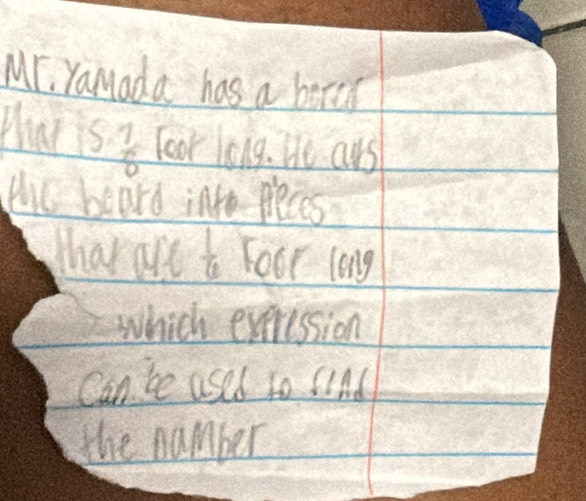 Mr. Yamada has a
that is foot long. He cuts
the board into pieces
that are foot long
which expression
can be used to find
the number